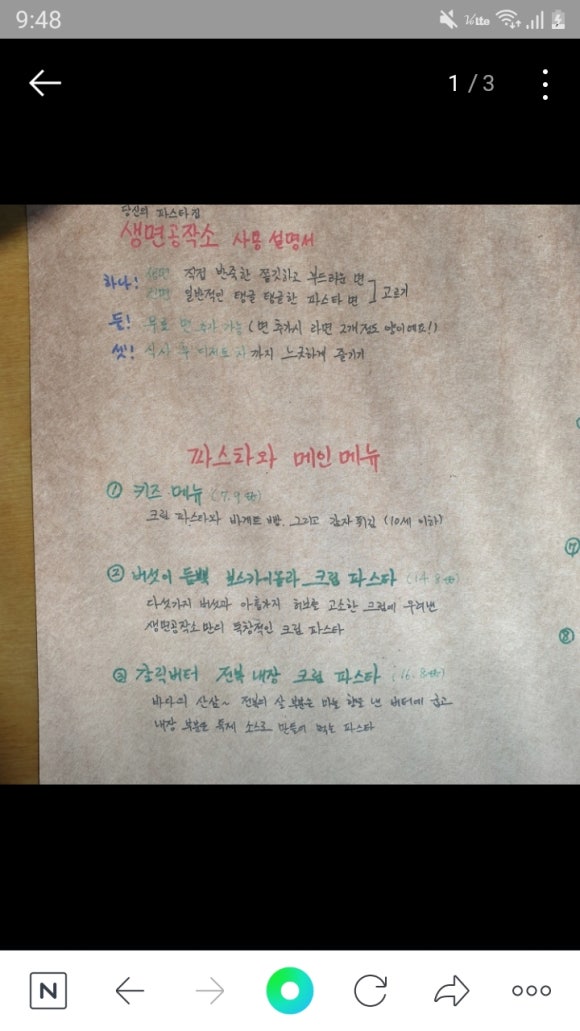 9:48
1 / 3
당신의 파스타집
생면공작소 사용 설명서
하나! 생면 직접 반죽한 쫄깃하고 부드러운 면
건면 일반적인 탱글 탱글한 파스타 면
고르기
둘! 무료 면 추가 가능 (면 추가시 라면 2개정도 양이에요!)
셋! 식사 후 디저트 까지 느긋하게 즐기기
파스타와 메인 메뉴
① 키즈 메뉴 (7.9천)
크림 파스타와 바게트 빵, 그리고 감자 튀김 (10세 이하)
② 버섯이 듬뿍 보스카이올라 크림 파스타 (14.8천)
다섯가지 버섯과 아홉가지 허브를 고소한 크림에 우려낸
생면공작소 만의 독창적인 크림 파스타
③ 갈릭버터 전복 내장 크림 파스타 (16.8천)
바다의 산삼~ 전복의 살 부분은 마늘 향을 낸 버터에 굽고
내장 부분은 특제 소스로 만들어 먹는 파스타
⑦
⑧
N